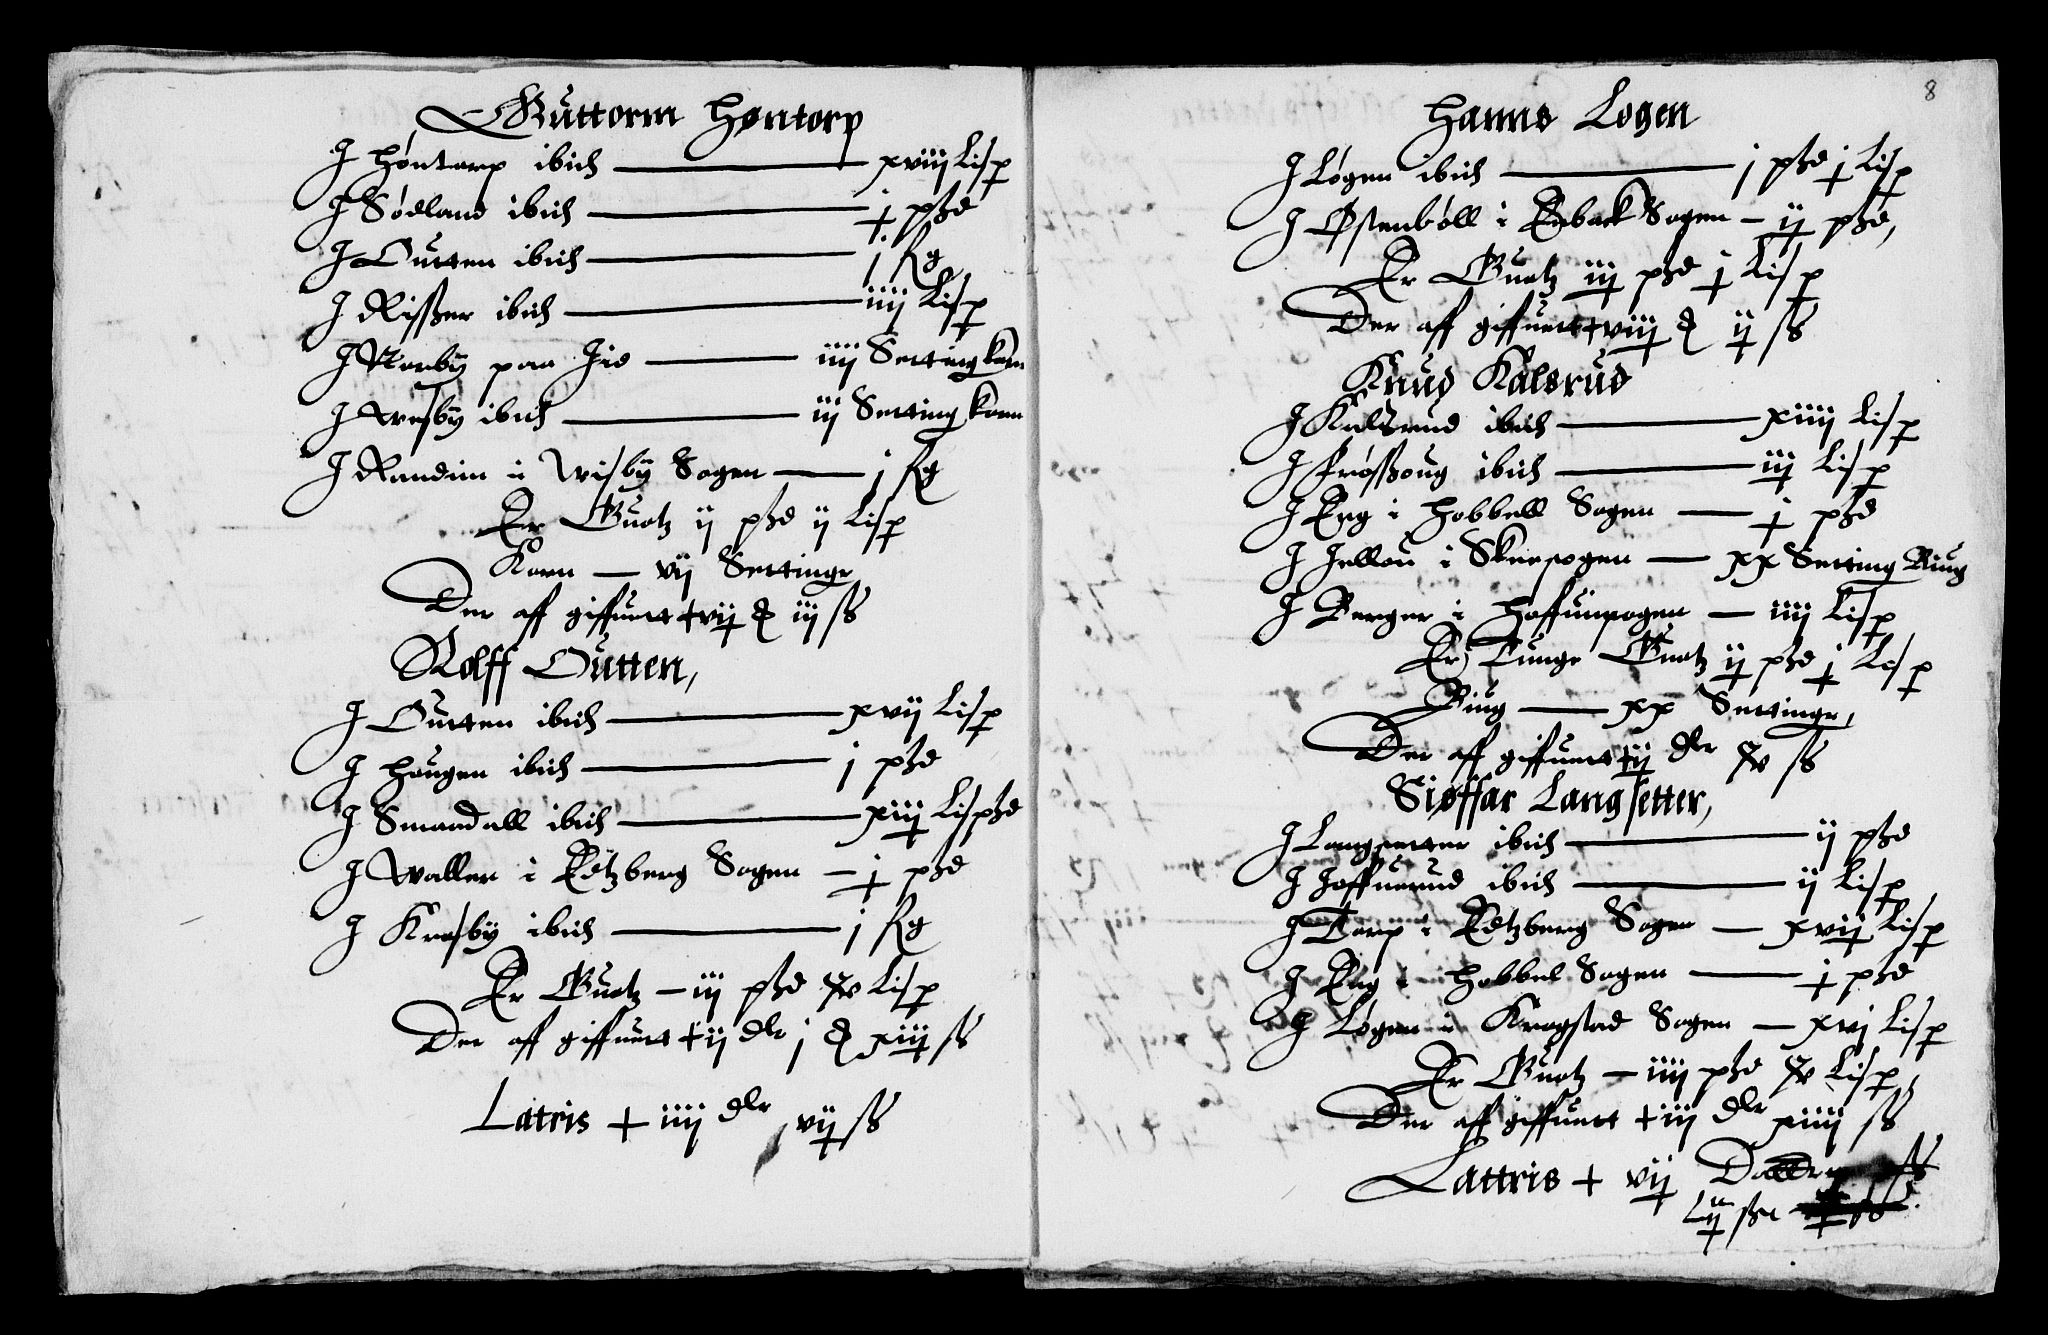 Guttorm Høntorp
J Høntorp ibid — xviij Lisp
J Sødland ibid — j pħd
J Outten ibid — j Kg
J Rissßer ibid — iiij Lisp
J Norby paa Jid — iiij Setting korn
J Wesby ibid — iij Setting korn
J Randim i Wisby Sogen — j Kg
Er Guotz ij pħd ij Lisp
Korn — vij Settinge
Der aff giffuett + vij ₰ iij ß
Rolff Outten,
J Outten ibid — xvij Lisp
J Hougen ibid — j pħd
J Smaadall ibid — xiij Lispħd
J Waller i Edtzberg Sogen — j pħd
J Krosby ibid — j Kg
Er Guotz — iij pħd xv Lisp
Der aff giffuett + ij dlr j ₰ xiij ß
Latris + iiij dlr vij ß
8
Hanns Logen
J Løgen ibid — j pħd j Lisp
J Østenbøll i Enback Sogen — ij pħd,
Er Guotz iij pħd j Lisp
Der aff giffuett + viij ₰ ij ß
Knud Kalsrud
J Kalsrud ibid — xiiij Lisp
J Frøsßoug ibid — iij Lisp
J Eng i Hobbell Sogen — j pħd
J Jellou i Skeesogen — xx Setting Biug
J Berger i Haffuinsogen — iiij Lisp
Er Tunge Guotz ij pħd j Lisp
Biug — xx Settinge,
Der aff giffuett + ij dlr xv ß
Sioffar Langsetter,
J Langsetter ibid — ij pħd
J Joffuerud ibid — ij Lisp
J Torp i Edtzberg Sogen — xvij Lisp
J Eng i Hobbel Sogen — j pħd
J Løgen i Kragstad Sogen — xvj Lisp
Er Guotz — iiij pħd xv Lisp
Der aff giffuett + iij dlr xiiij ß
Lattris + vij Daller
Lij ß